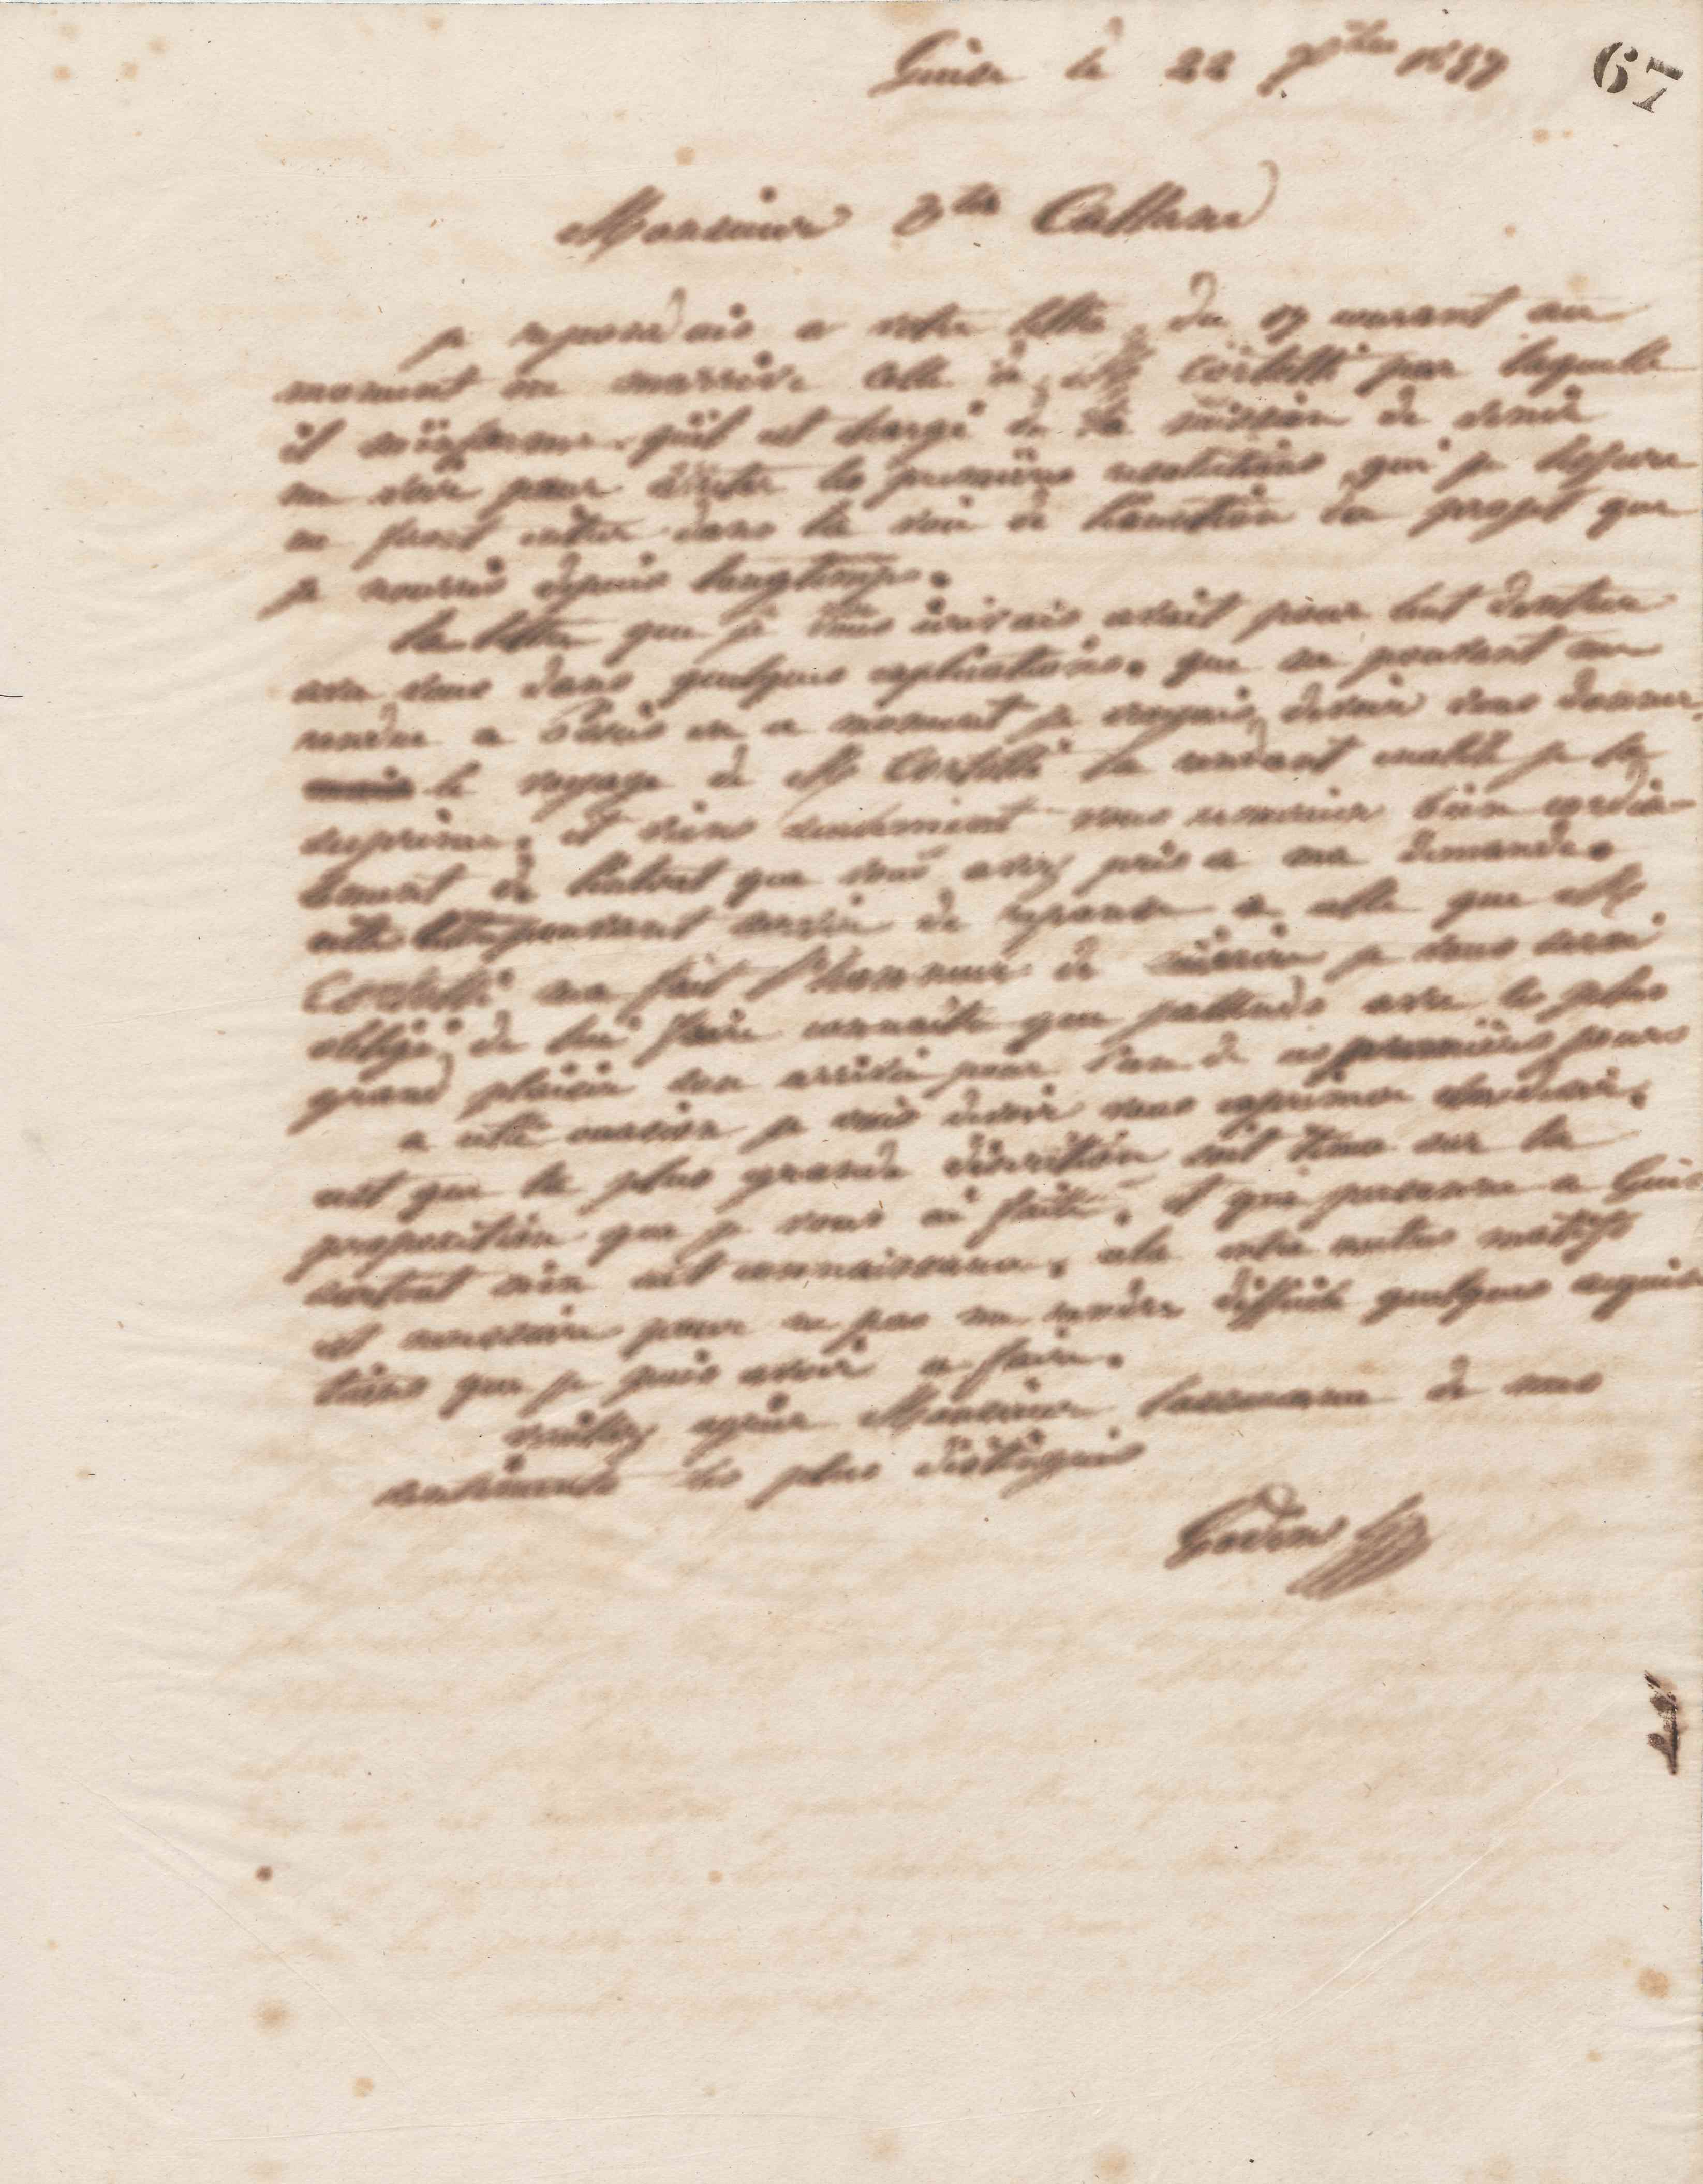 Guise le 22 7bre 1857 67
Monsieur Vtor Calland
je repondais a votre lettre du 19 courant au
moment ou marrive celle de M Cantagrel par laquelle
il m'informe qu'il est chargé de la mission de venir
me voir pour les premières que je
me font entrer dans la voie de du projet que
je nourris depuis longtemps.
la lettre que je vous écrivais avait pour but dentrer
avec vous dans quelques explications que ne pouvant me
rendre a Paris en ce moment je croyais devoir vous donner,
le voyage de M la rendant inutile je la
supprime, et viens seulement vous remercier bien cordia-
lement de que vous avez pris a ma demande.
cette lettre pouvant servir de reponse a celle que M
ma fait l'honneur de je vous serai
obligé de lui faire connaitre que jattends avec le plus
grand plaisir son arrivée pour l'un de ces premiers jours
a cette occasion je crois devoir vous exprimer
cest que la plus grande discrétion soit tenue sur la
proposition que je vous ai faite, et que personne a Guise
surtout nen ait connaissance, cela entre autres motifs
est necessaire pour ne pas me rendre difficile quelques acquisi
tions que je puis avoir a faire.
veuillez agréer Monsieur lassurance de mes
sentiments les plus distingués
Godin